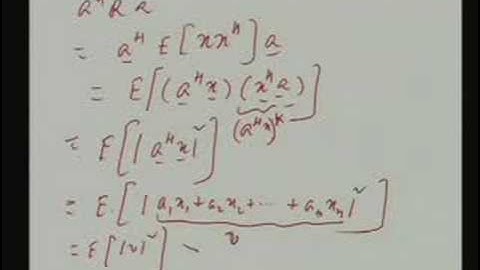 a^H R a
= a^H E[x x^H] a
= E[(a^H x) (x^H a)]
(a^H x)^*
= E[|a^H x|^2]
= E[|a_1 x_1 + a_2 x_2 + ... + a_n x_n|^2]
v
= E[|v|^2]